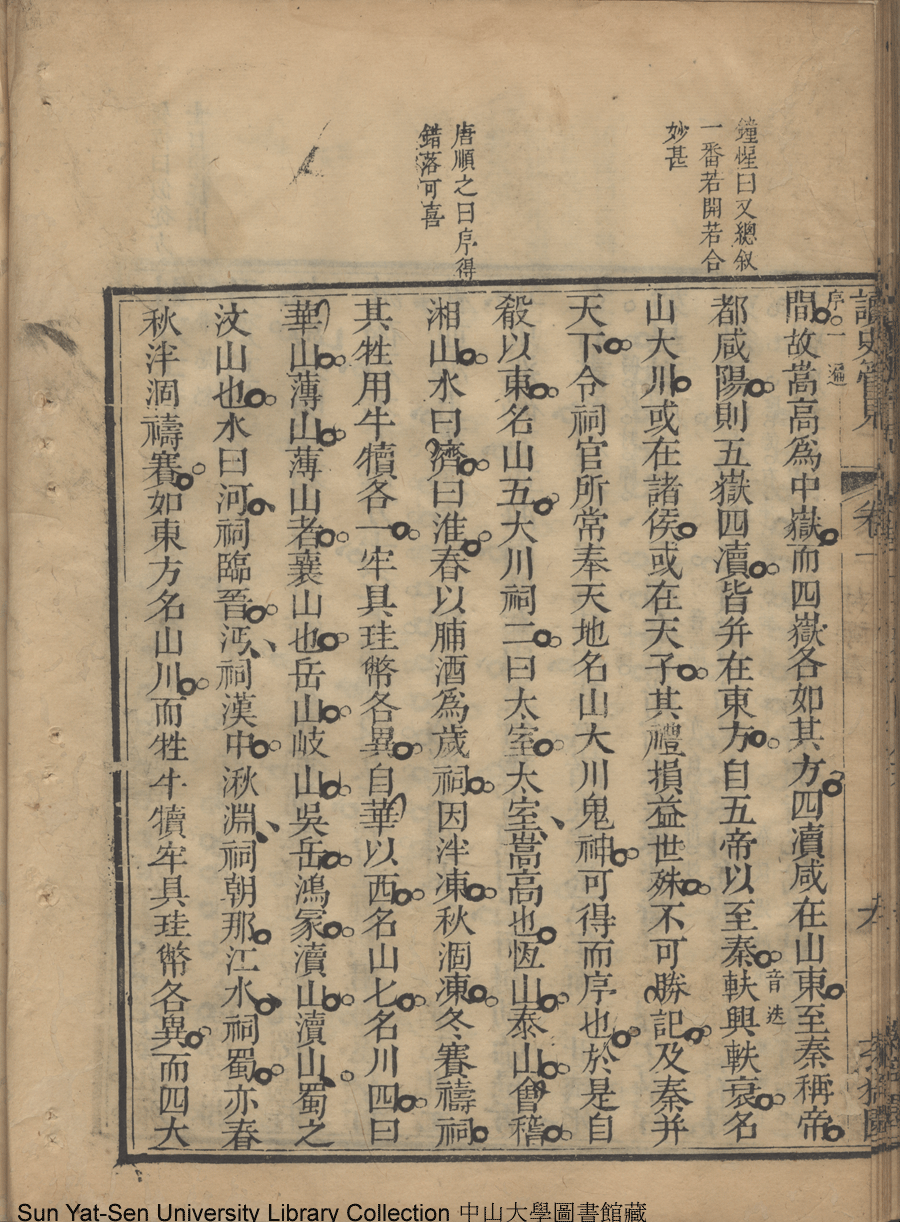 鐘惺曰又總叙
一番若開若合
妙甚
唐順之曰序得
錯落可喜
讀史管見
卷一
九
序一遍
間故嵩高為中嶽而四嶽各如其方四瀆咸在山東至秦稱帝
都咸陽則五嶽四瀆皆并在東方自五帝以至秦軼音迭興軼衰名
山大川或在諸侯或在天子其禮損益世殊不可勝記及秦并
天下令祠官所常奉天地名山大川鬼神可得而序也於是自
殽以東名山五大川祠二曰太室太室嵩高也恆山泰山會稽
湘山水曰濟曰淮春以脯酒為歲祠因泮凍秋涸凍冬賽禱祠
其牲用牛犢各一牢具珪幣各異自華以西名山七名川四曰
華山薄山薄山者襄山也岳山岐山吳岳鴻冢瀆山瀆山蜀之
汶山也水曰河祠臨晉沔祠漢中湫淵祠朝那江水祠蜀亦春
秋泮涸禱賽如東方名山川而牲牛犢牢具珪幣各異而四大
Sun Yat-Sen University Library Collection 中山大學圖書館藏